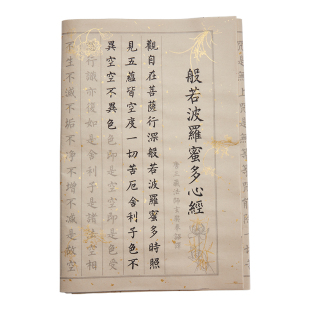 般若波羅蜜多心經
唐三藏法師玄奘奉詔譯
觀自在菩薩行深般若波羅蜜多時照
見五蘊皆空度一切苦厄舍利子色不
異空空不異色色即是空空即是色受
想行識亦復如是舍利子是諸法空相
不生不滅不垢不淨不增不減是故空